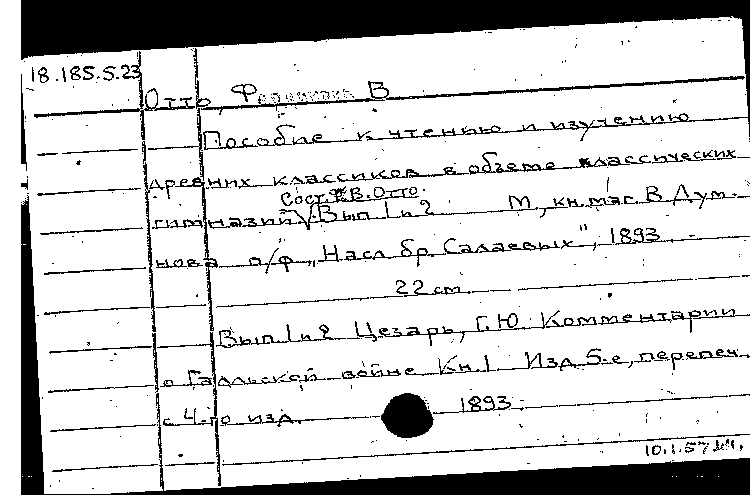 18.185.5.23
Отто, Ф В
Пособие к чтению и изучению
древних классиков в объеме классических
Сост. Ф.В. Отто.
гимназий Вып 1 и 2 М., кн. маг. В. Дум.
нова п/ф „Насл бр. Салаевых", 1893
22 см.
Вып. 1 и 2 Цезарь, Г.Ю. Комментарии
о Галльской войне Кн. 1 Изд. 5-е, перепеч.
с 4-го изд. 1893.
10.1.57